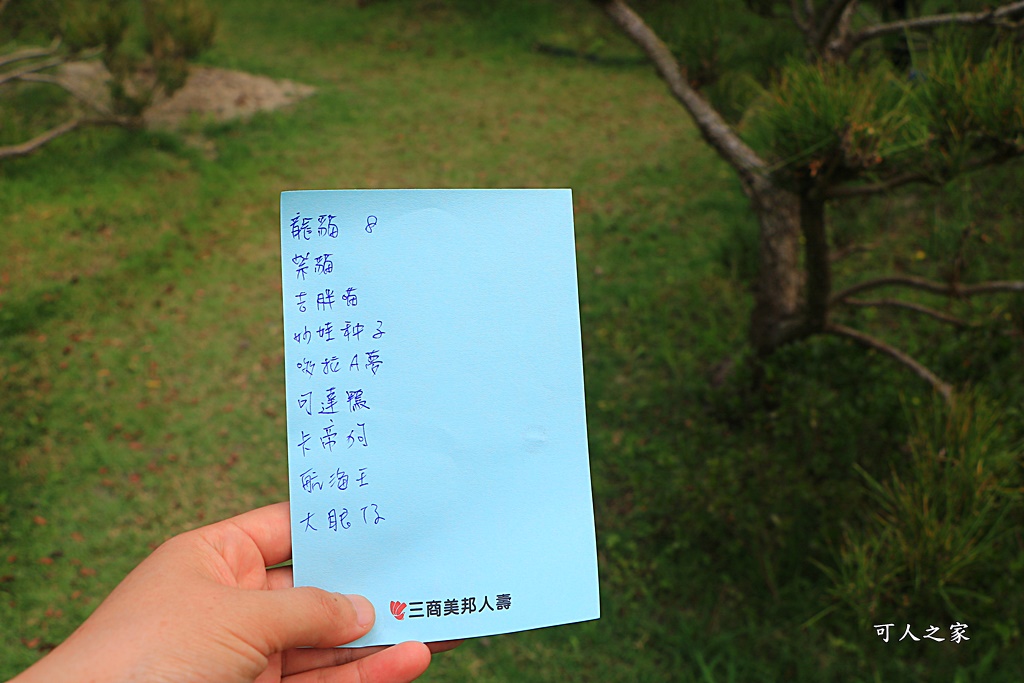 龍貓 8
柴貓
吉胖喵
妙娃种子
哆拉A夢
可達鴨
卡帝狗
航海王
大眼仔
三商美邦人壽
可人之家